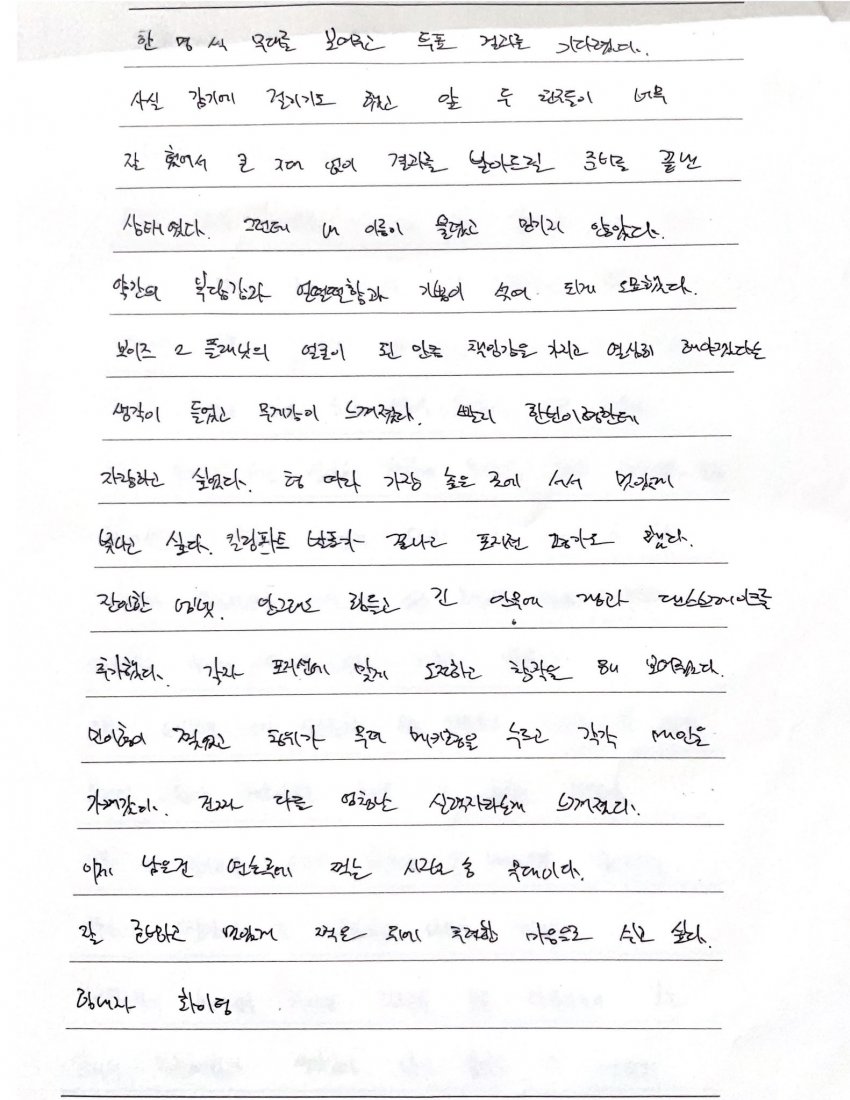 한 명 씩 무대를 보여주고 투표 결과를 기다렸다.
사실 감기에 걸리기도 했고 앞 두 친구들이 너무
잘 했어서 큰 기대 없이 결과를 받아드릴 준비를 끝낸
상태였다. 그런데 내 이름이 불렸고 믿기지 않았다.
약간의 부담감과 얼떨떨함과 기쁨이 섞여 되게 오묘했다.
보이즈 2 플래닛의 얼굴이 된 만큼 책임감을 가지고 열심히 해야겠다는
생각이 들었고 무게감이 느껴졌다. 빨리 한빈이형한테
자랑하고 싶었다. 형 따라 가장 높은 곳에 서서 멋있게
빛나고 싶다. 킬링파트 끝나고 포지션 평가도 했다.
잔인한 엠넷. 안그래도 힘들고 긴 안무에 랩과 댄스브레이크를
추가했다. 각자 포지션에 맞게 도전하고 창작을 해 보여줬다.
찢었고 무려 누르고 각각 메인을
가져갔다. 진짜 다들 엄청난 실력자라는게 느껴졌다.
이제 남은건 연습곡에 찍는 시그널 송 무대이다.
잘 준비하고 멋있게 찍은 뒤에 후련한 마음으로 쉬고 싶다.
화이팅